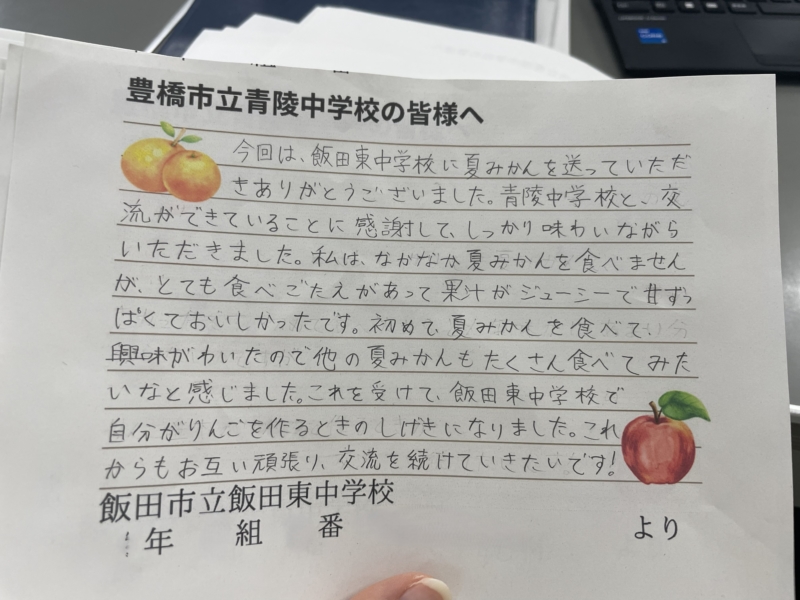 豊橋市立青陵中学校の皆様へ
今回は、飯田東中学校に夏みかんを送っていただ
きありがとうございました。青陵中学校と、交
流ができていることに感謝して、しっかり味わいながら
いただきました。私は、なかなか夏みかんを食べません
が、とても食べごたえがあって果汁がジューシーで甘ずっ
ぱくておいしかったです。初めて、夏みかんを食べて、
興味がわいたので他の夏みかんもたくさん食べてみた
いなと感じました。これを受けて、飯田東中学校で
自分がりんごを作るときのしげきになりました。これ
からもお互い頑張り、交流を続けていきたいです!
飯田市立飯田東中学校
年 組 番 より